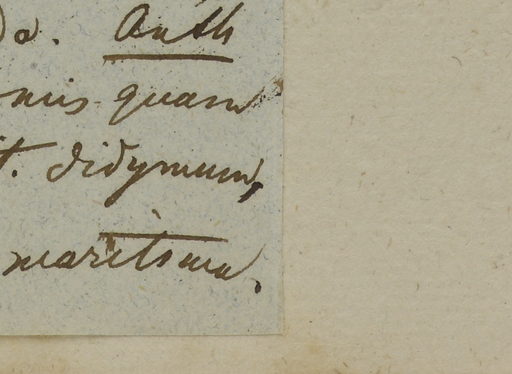 da. Auth
mis quam
t. didymum,
maritima.